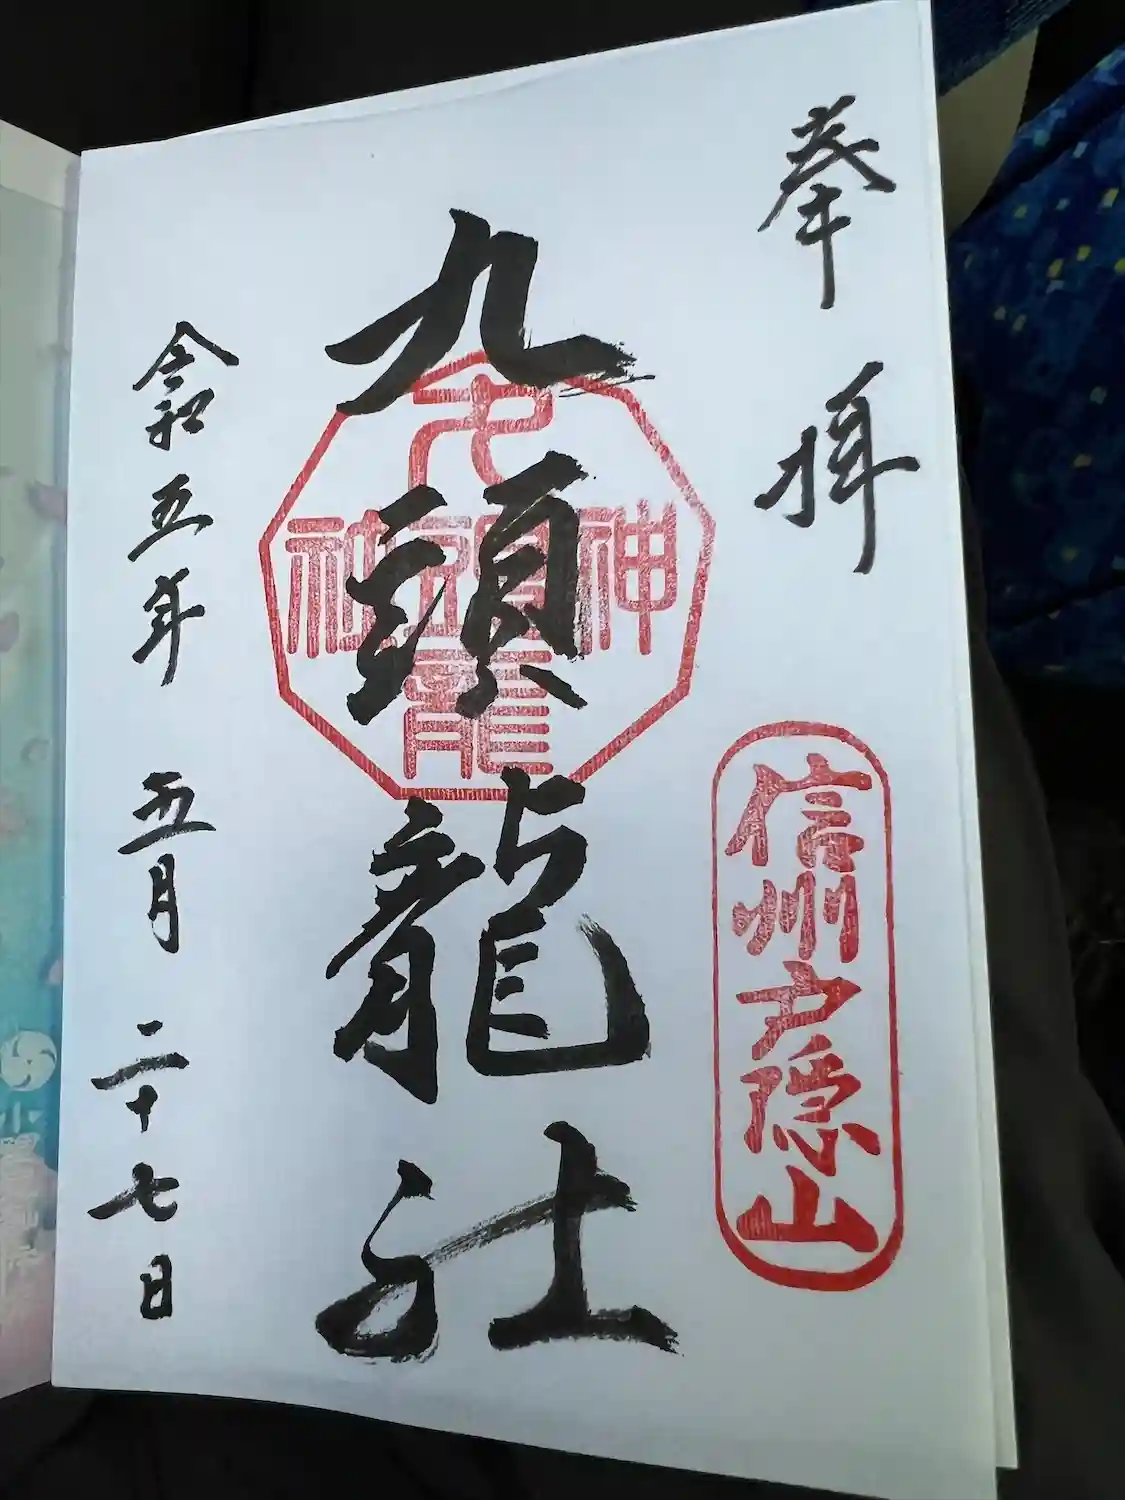 奉拝
信州戸隠山
九頭龍社
神
九頭龍
社
令和五年 五月 二十七日